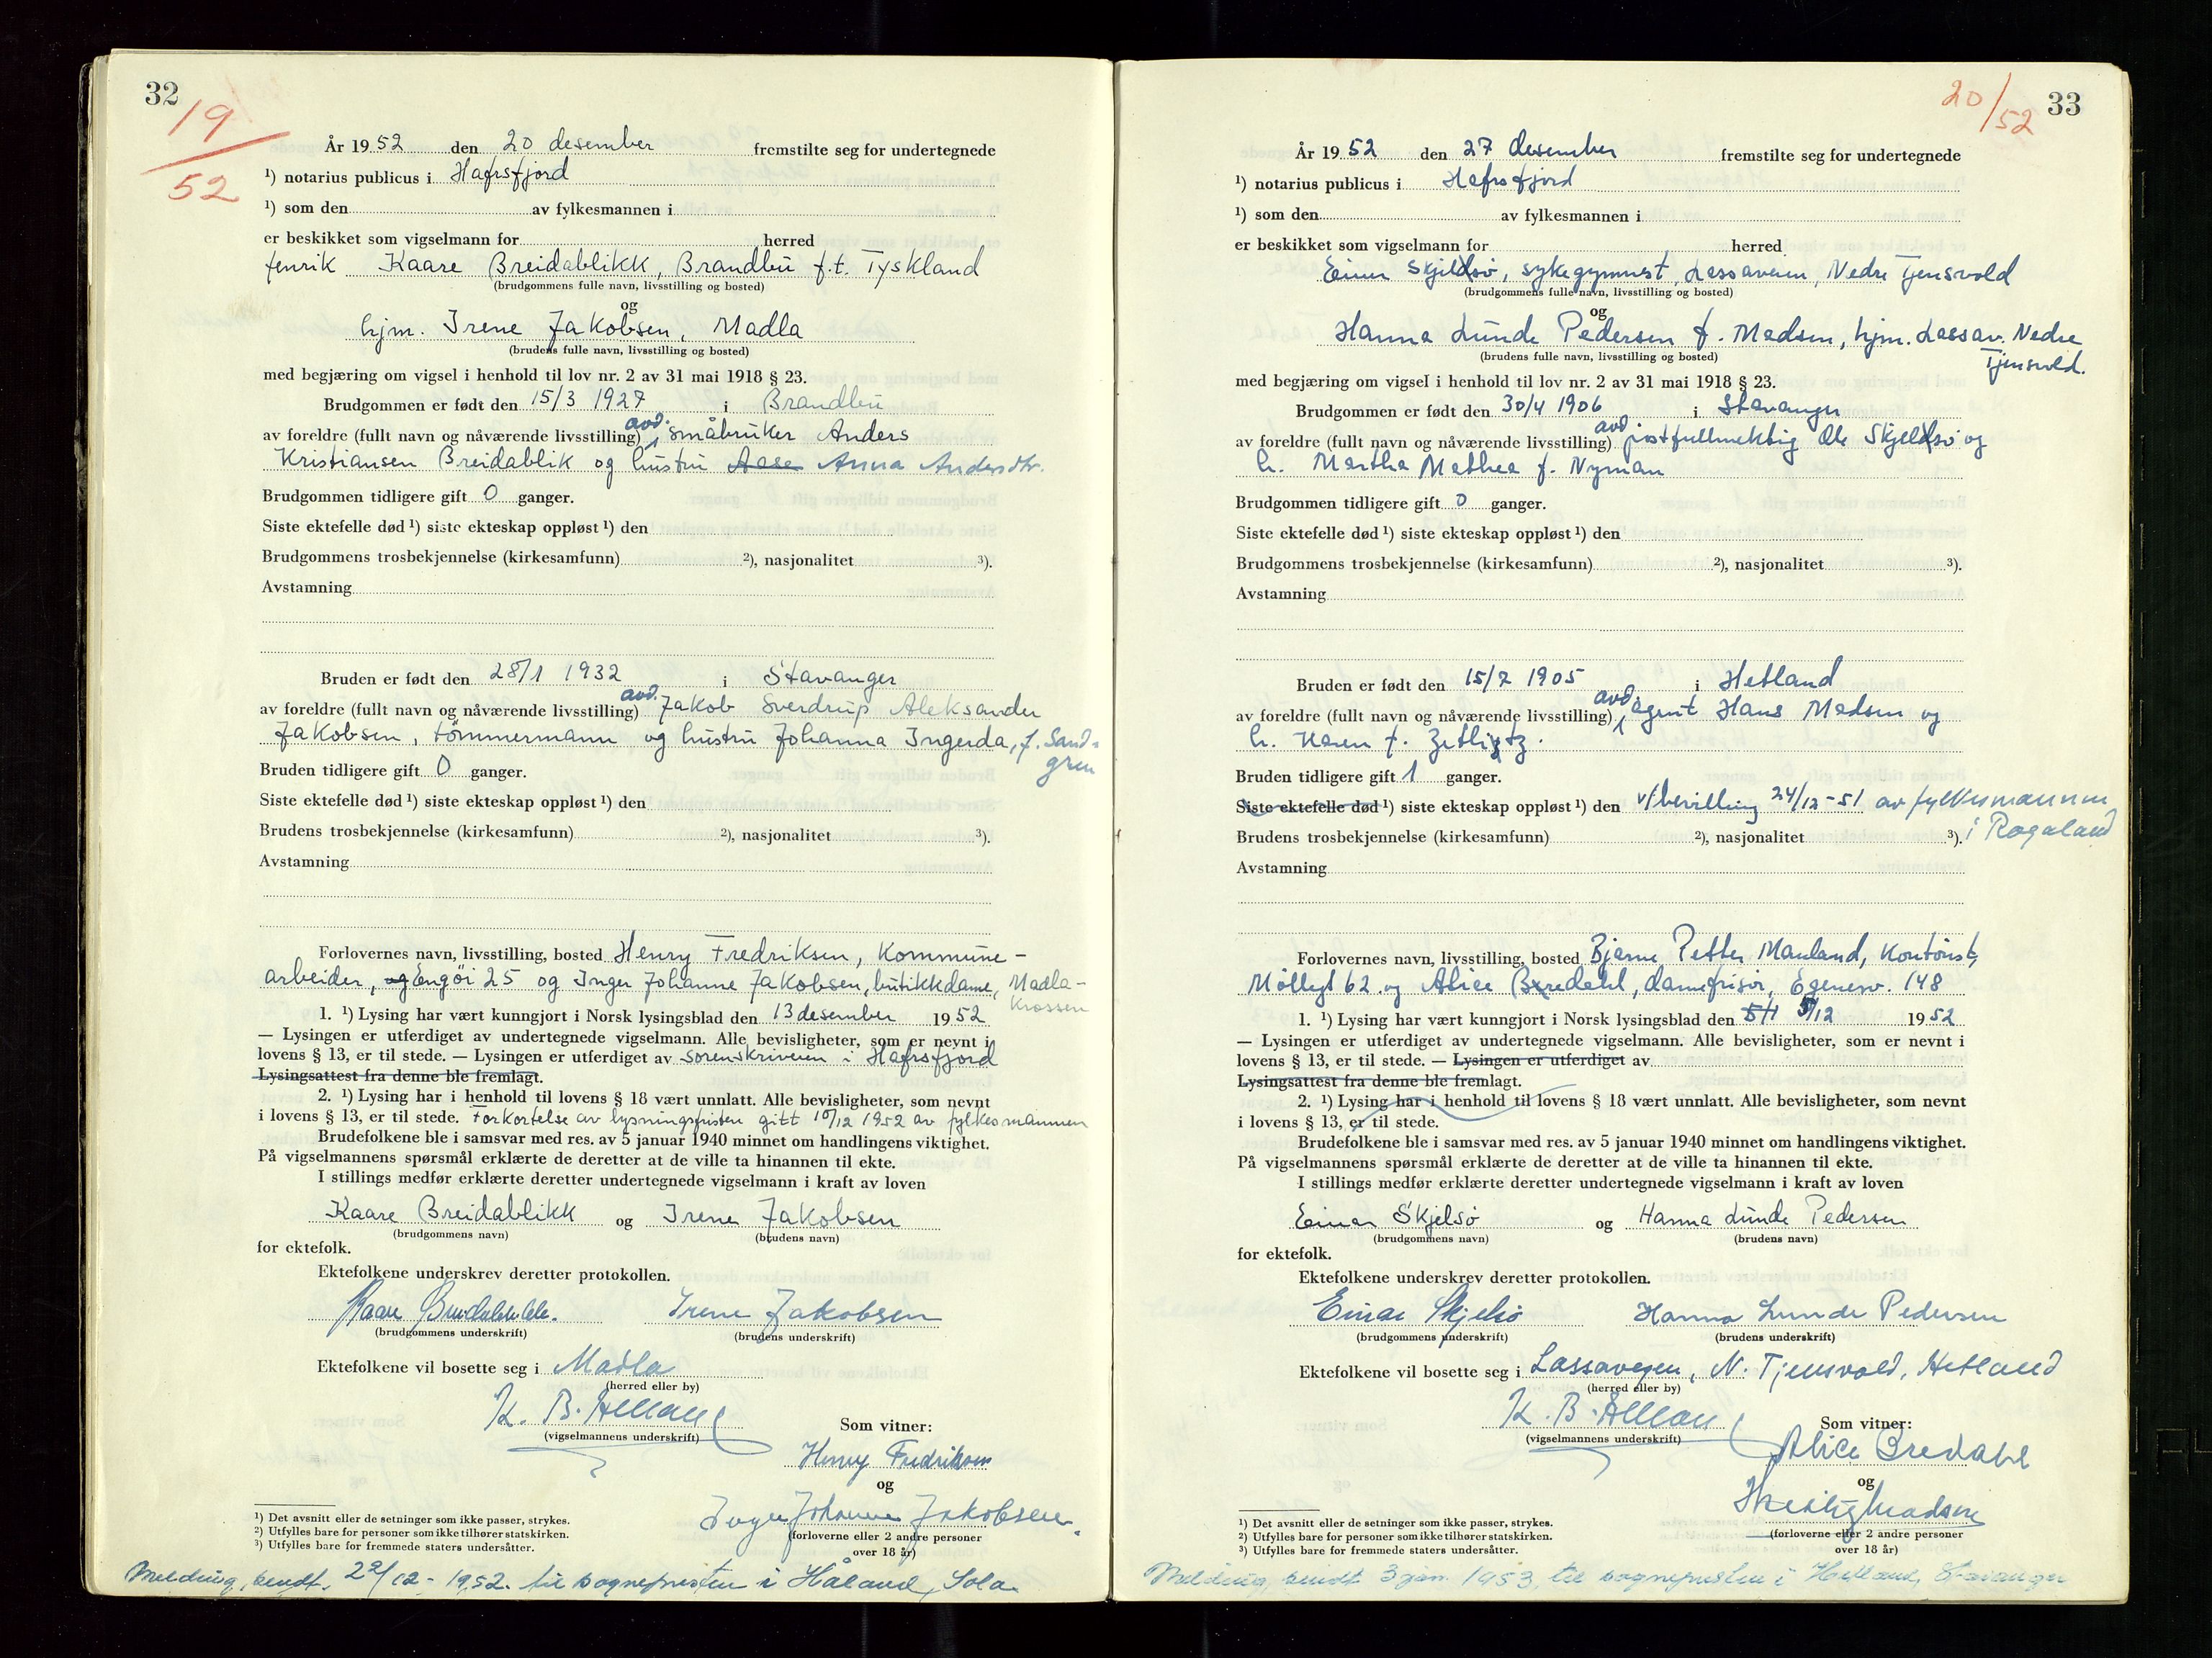 32
19/52
År 1952 den 20 desember fremstilte seg for undertegnede
¹) notarius publicus i Hafrsfjord
¹) som den av fylkesmannen i
er beskikket som vigselmann for herred
fenrik Kaare Breidablikk, Brandbu f.t. Tyskland
(brudgommens fulle navn, livsstilling og bosted)
og
hjm. Irene Jakobsen, Madla
(brudens fulle navn, livsstilling og bosted)
med begjæring om vigsel i henhold til lov nr. 2 av 31 mai 1918 § 23.
Brudgommen er født den 15/3 1927 i Brandbu
av foreldre (fullt navn og nåværende livsstilling) avd. småbruker Anders
Kristiansen Breidablik og hustru Aase Anna Andersdtr.
Brudgommen tidligere gift 0 ganger.
Siste ektefelle død ¹) siste ekteskap oppløst ¹) den
Brudgommens trosbekjennelse (kirkesamfunn) ²), nasjonalitet ³).
Avstamning
Bruden er født den 28/1 1932 i Stavanger
av foreldre (fullt navn og nåværende livsstilling) avd. Jakob Sverdrup Aleksander
Jakobsen, tömmermann og hustru Johanna Ingerda, f. Sand-
gren
Bruden tidligere gift 0 ganger.
Siste ektefelle død ¹) siste ekteskap oppløst ¹) den
Brudens trosbekjennelse (kirkesamfunn) ²), nasjonalitet ³).
Avstamning
Forlovernes navn, livsstilling, bosted Henry Fredriksen, Kommune-
arbeider, og Engöi 25 og Inger Johanne Jakobsen, butikkdame, Madla-
Krossen
1. ¹) Lysing har vært kunngjort i Norsk lysingsblad den 13 desember 1952
— Lysingen er utferdiget av undertegnede vigselmann. Alle bevisligheter, som er nevnt i
lovens § 13, er til stede. — Lysingen er utferdiget av sorenskriveren i Hafrsfjord
Lysingsattest fra denne ble fremlagt.
2. ¹) Lysing har i henhold til lovens § 18 vært unnlatt. Alle bevisligheter, som nevnt
i lovens § 13, er til stede. Forkortelse av lysningsfristen gitt 10/12 1952 av fylkesmannen
Brudefolkene ble i samsvar med res. av 5 januar 1940 minnet om handlingens viktighet.
På vigselmannens spørsmål erklærte de deretter at de ville ta hinannen til ekte.
I stillings medfør erklærte deretter undertegnede vigselmann i kraft av loven
Kaare Breidablikk og Irene Jakobsen
(brudgommens navn) (brudens navn)
for ektefolk.
Ektefolkene underskrev deretter protokollen.
Kaare Breidablikk. Irene Jakobsen
(brudgommens underskrift) (brudens underskrift)
Ektefolkene vil bosette seg i Madla
(herred eller by)
K. B. Helland
(vigselmannens underskrift)
Som vitner:
Henry Fredriksen
og
Inger Johanne Jakobsen.
(forloverne eller 2 andre personer
over 18 år)
¹) Det avsnitt eller de setninger som ikke passer, strykes.
²) Utfylles bare for personer som ikke tilhører statskirken.
³) Utfylles bare for fremmede staters undersåtter.
Melding sendt 22/12 - 1952. til sognepresten i Håland, Sola.
33
20/52
År 1952 den 27 desember fremstilte seg for undertegnede
¹) notarius publicus i Hafrsfjord
¹) som den av fylkesmannen i
er beskikket som vigselmann for herred
Einar Skjeldsö, sykegymnast, Lassaveien, Nedre Tjensvold
(brudgommens fulle navn, livsstilling og bosted)
og
Hanna Lunde Pedersen f. Madsen, hjm. Lassav. Nedre
Tjensvold.
(brudens fulle navn, livsstilling og bosted)
med begjæring om vigsel i henhold til lov nr. 2 av 31 mai 1918 § 23.
Brudgommen er født den 30/4 1906 i Stavanger
av foreldre (fullt navn og nåværende livsstilling) avd. postfullmektig Ole Skjeldsö og
h. Martha Mathea f. Nyman
Brudgommen tidligere gift 0 ganger.
Siste ektefelle død ¹) siste ekteskap oppløst ¹) den
Brudgommens trosbekjennelse (kirkesamfunn) ²), nasjonalitet ³).
Avstamning
Bruden er født den 15/7 1905 i Hetland
av foreldre (fullt navn og nåværende livsstilling) avd. agent Hans Madsen og
h. Karen f. Zetlitz.
Bruden tidligere gift 1 ganger.
Siste ektefelle død ¹) siste ekteskap oppløst ¹) den v/bevilling 24/12-51 av fylkesmannen
i Rogaland
Brudens trosbekjennelse (kirkesamfunn) ²), nasjonalitet ³).
Avstamning
Forlovernes navn, livsstilling, bosted Bjarne Petter Mauland, kontorist,
Möllegt 62. og Alice Bredahl, damefrisör, Egenesv. 148
1. ¹) Lysing har vært kunngjort i Norsk lysingsblad den 5/1 5/12 1952
— Lysingen er utferdiget av undertegnede vigselmann. Alle bevisligheter, som er nevnt i
lovens § 13, er til stede. — Lysingen er utferdiget av
Lysingsattest fra denne ble fremlagt.
2. ¹) Lysing har i henhold til lovens § 18 vært unnlatt. Alle bevisligheter, som nevnt
i lovens § 13, er til stede.
Brudefolkene ble i samsvar med res. av 5 januar 1940 minnet om handlingens viktighet.
På vigselmannens spørsmål erklærte de deretter at de ville ta hinannen til ekte.
I stillings medfør erklærte deretter undertegnede vigselmann i kraft av loven
Einar Skjelsö og Hanna Lunde Pedersen
(brudgommens navn) (brudens navn)
for ektefolk.
Ektefolkene underskrev deretter protokollen.
Einar Skjelsö Hanna Lunde Pedersen
(brudgommens underskrift) (brudens underskrift)
Ektefolkene vil bosette seg i Lassavegen, N. Tjensvold, Hetland
(herred eller by)
K. B. Helland
(vigselmannens underskrift)
Som vitner:
Alice Bredahl
og
Madsen
(forloverne eller 2 andre personer
over 18 år)
¹) Det avsnitt eller de setninger som ikke passer, strykes.
²) Utfylles bare for personer som ikke tilhører statskirken.
³) Utfylles bare for fremmede staters undersåtter.
Melding sendt 3 jan. 1953, til sognepresten i Hetland, Stavanger